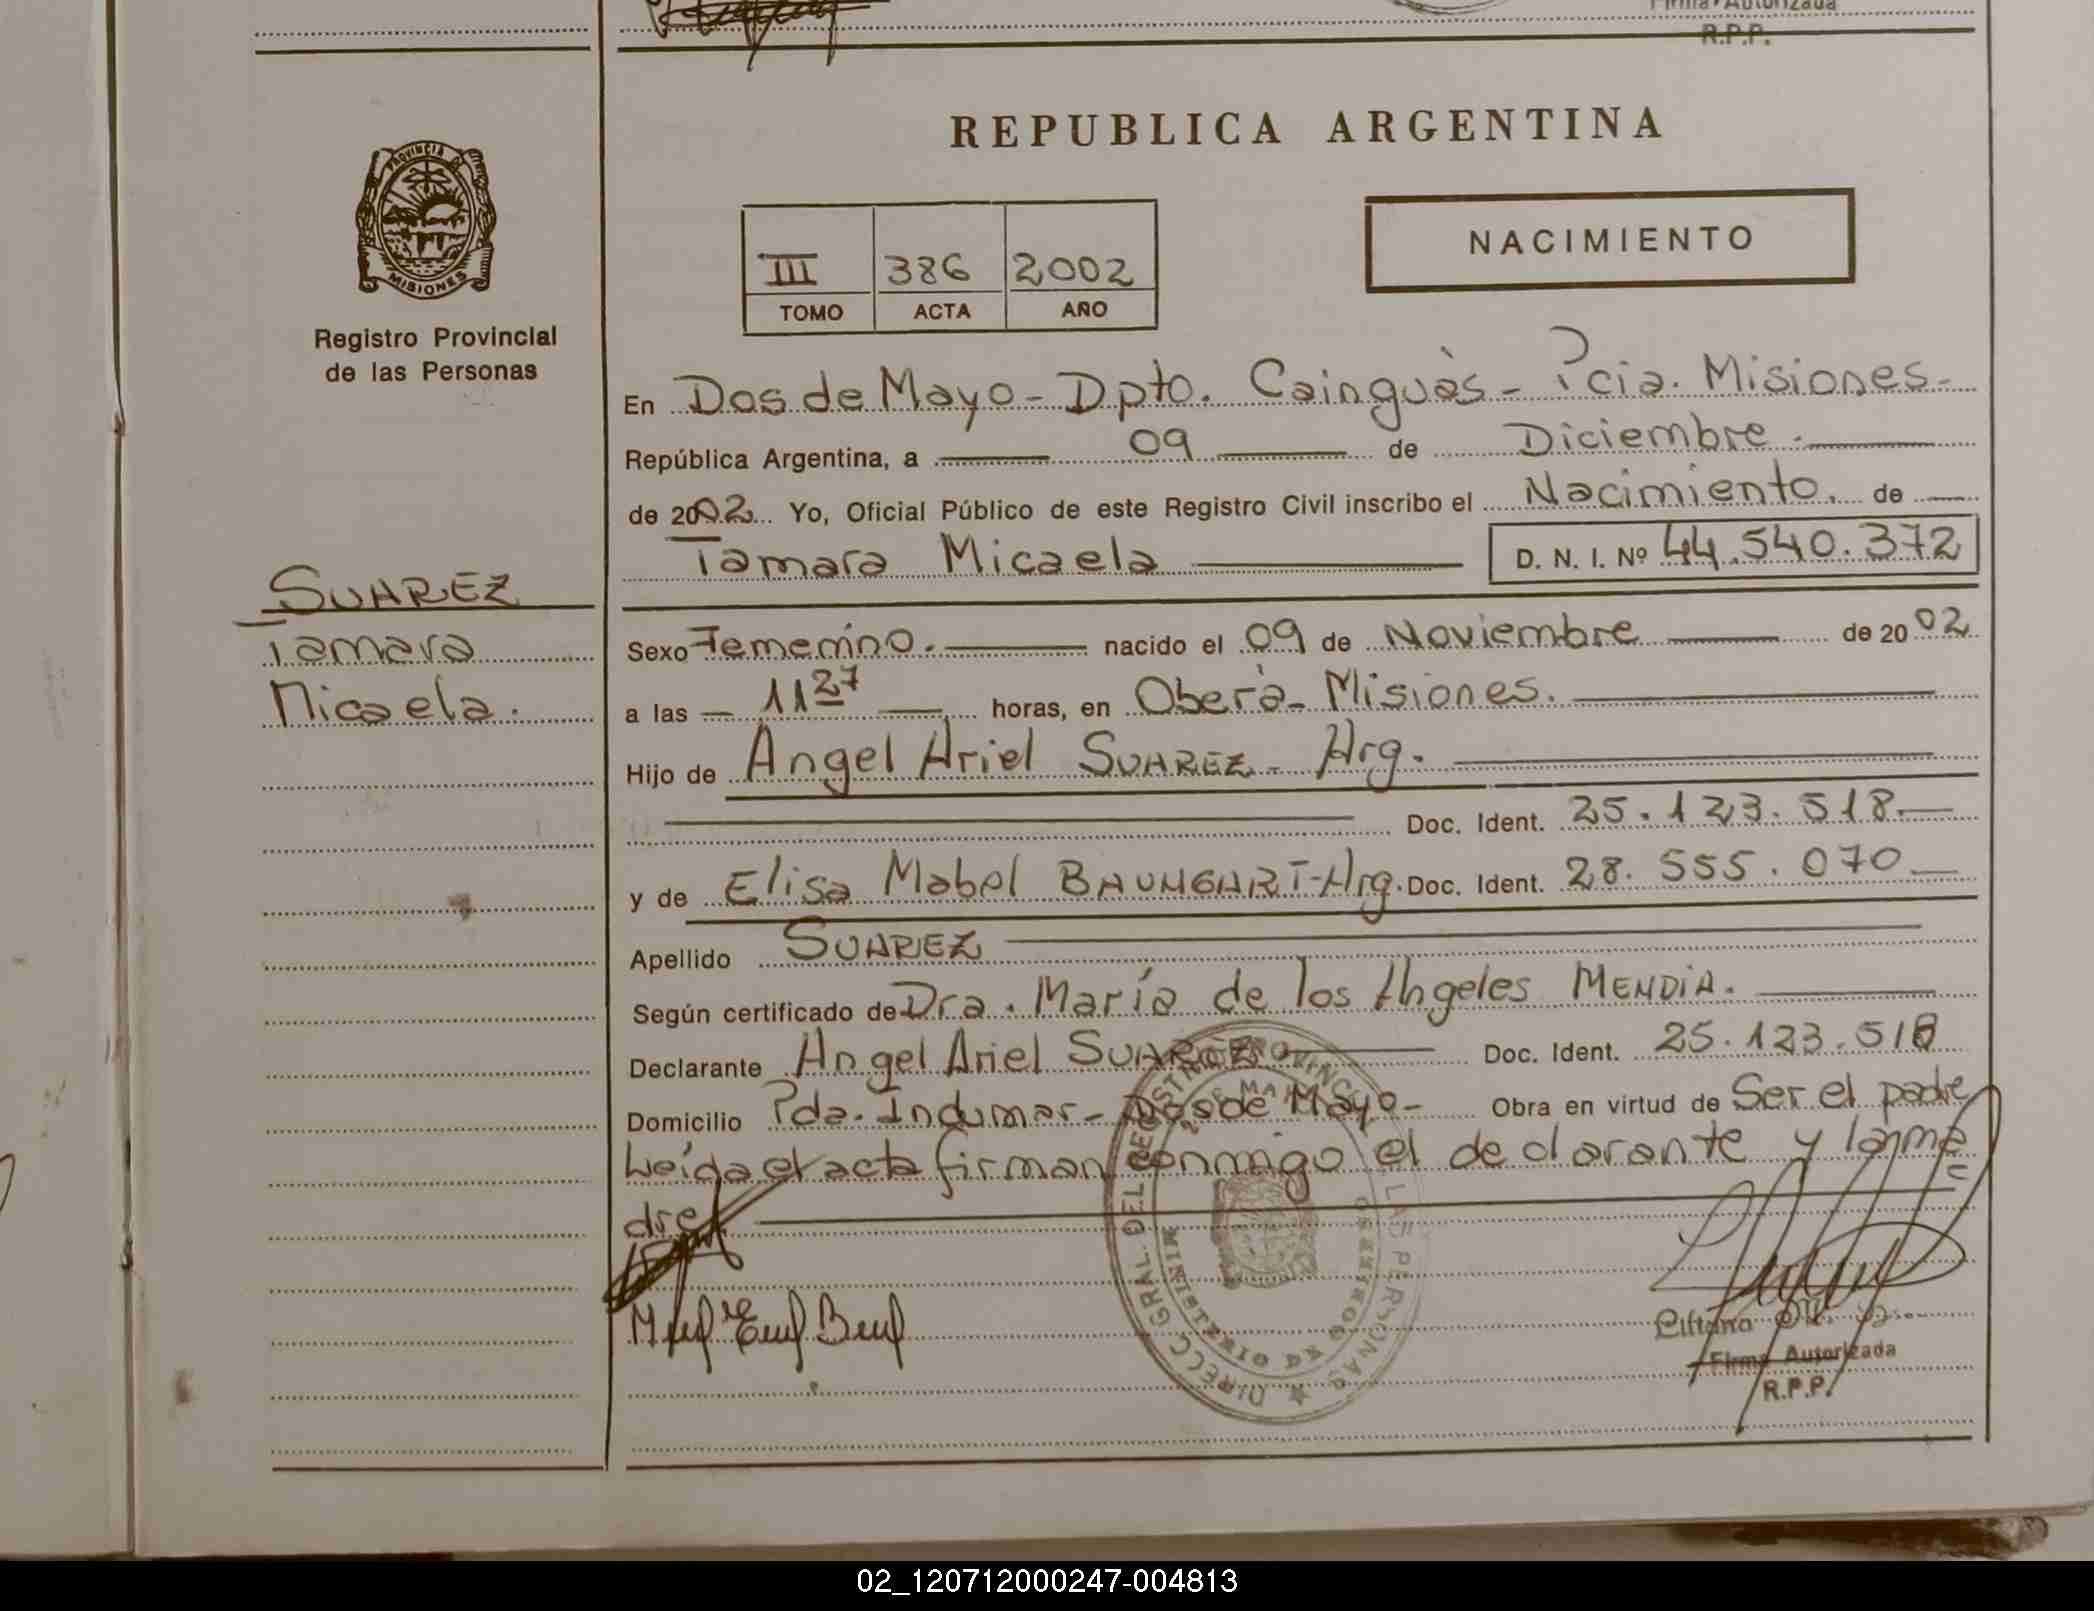 Firma Autorizada
R.P.P.
PROVINCIA DE
MISIONES
Registro Provincial
de las Personas
REPUBLICA ARGENTINA
NACIMIENTO
III 386 2002
TOMO ACTA AÑO
En Dos de Mayo - Dpto. Cainguàs - Pcia. Misiones -
República Argentina, a 09 de Diciembre.
de 2002. Yo, Oficial Público de este Registro Civil inscribo el Nacimiento. de
Tamara Micaela D. N. I. Nº 44.540.372
SUAREZ
Tamara
Micaela.
Sexo Femenino. nacido el 09 de Noviembre de 2002
a las 11 27 horas, en Oberà - Misiones.
Hijo de Angel Ariel SUAREZ - Arg.
Doc. Ident. 25.123.518.
y de Elisa Mabel BAUMGART - Arg. Doc. Ident. 28.555.070
Apellido SUAREZ
Según certificado de Dra. María de los Angeles MENDIA.
Declarante Angel Ariel SUAREZ Doc. Ident. 25.123.518
Domicilio Pda. Indumar - Dos de Mayo - Obra en virtud de Ser el padre
Leída el acta firman conmigo el declarante y la ma
dre
DIRECC GRAL. DEL REGISTRO PROVINCIAL LAS PERSONAS
Firma Autorizada
R.P.P.
02_120712000247-004813